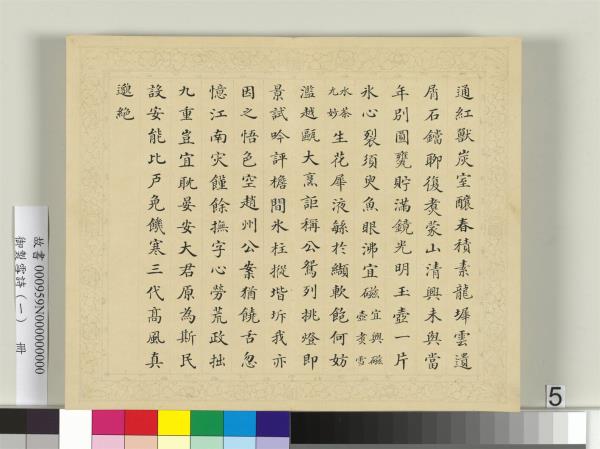 通紅獸炭室釀春積素龍墀雲遺
屑石鐺聊復煮蒙山清興未與當
年別圓甕貯滿鏡光明玉壺一片
冰心裂須臾魚眼沸宜磁宜興磁壺煮雪
水茶尤妙生花犀液緐於纈軟飽何妨
濫越甌大烹詎稱公鴛列挑燈即
景試吟評檐間氷柱摐堦圻我亦
因之悟色空趙州公案猶饒舌忽
憶江南灾饉餘撫字心勞荒政拙
九重豈宜耽晏安大君原為斯民
設安能比戸免饑寒三代髙風真
邈絶
故書 000959N000000000
御製雪詩（一） 冊
5